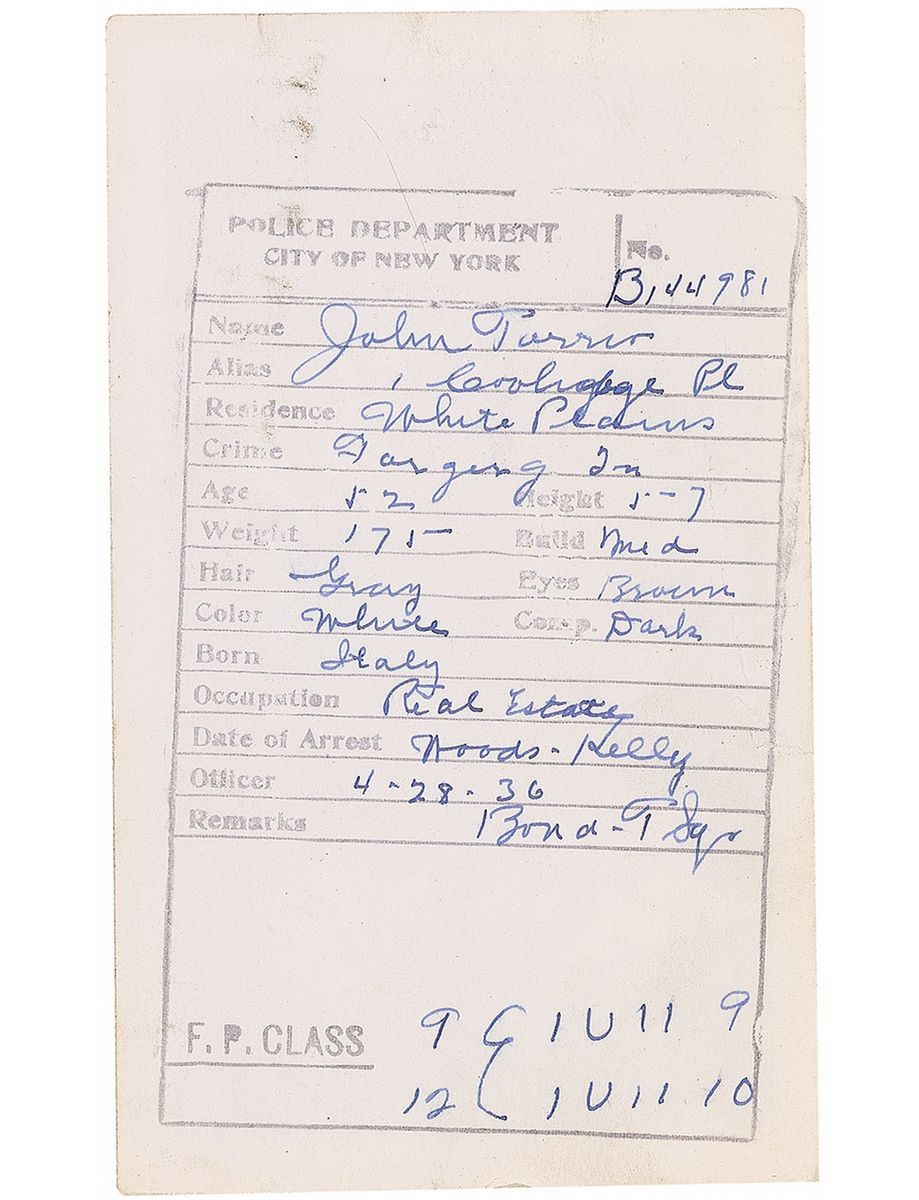 POLICE DEPARTMENT
CITY OF NEW YORK
No.
B, 44981
Name John Torrio
Alias 1 Coolidge Pl
Residence White Plains
Crime
Age 52 Height 5-7
Weight 175 Build Med
Hair Gray Eyes Brown
Color White Comp. Dark
Born Italy
Occupation Real Estate
Date of Arrest Woods-Kelly
Officer 4-28-36
Remarks Bond-T Sq
F. P. CLASS 9 1 U 11 9
12 1 U 11 10